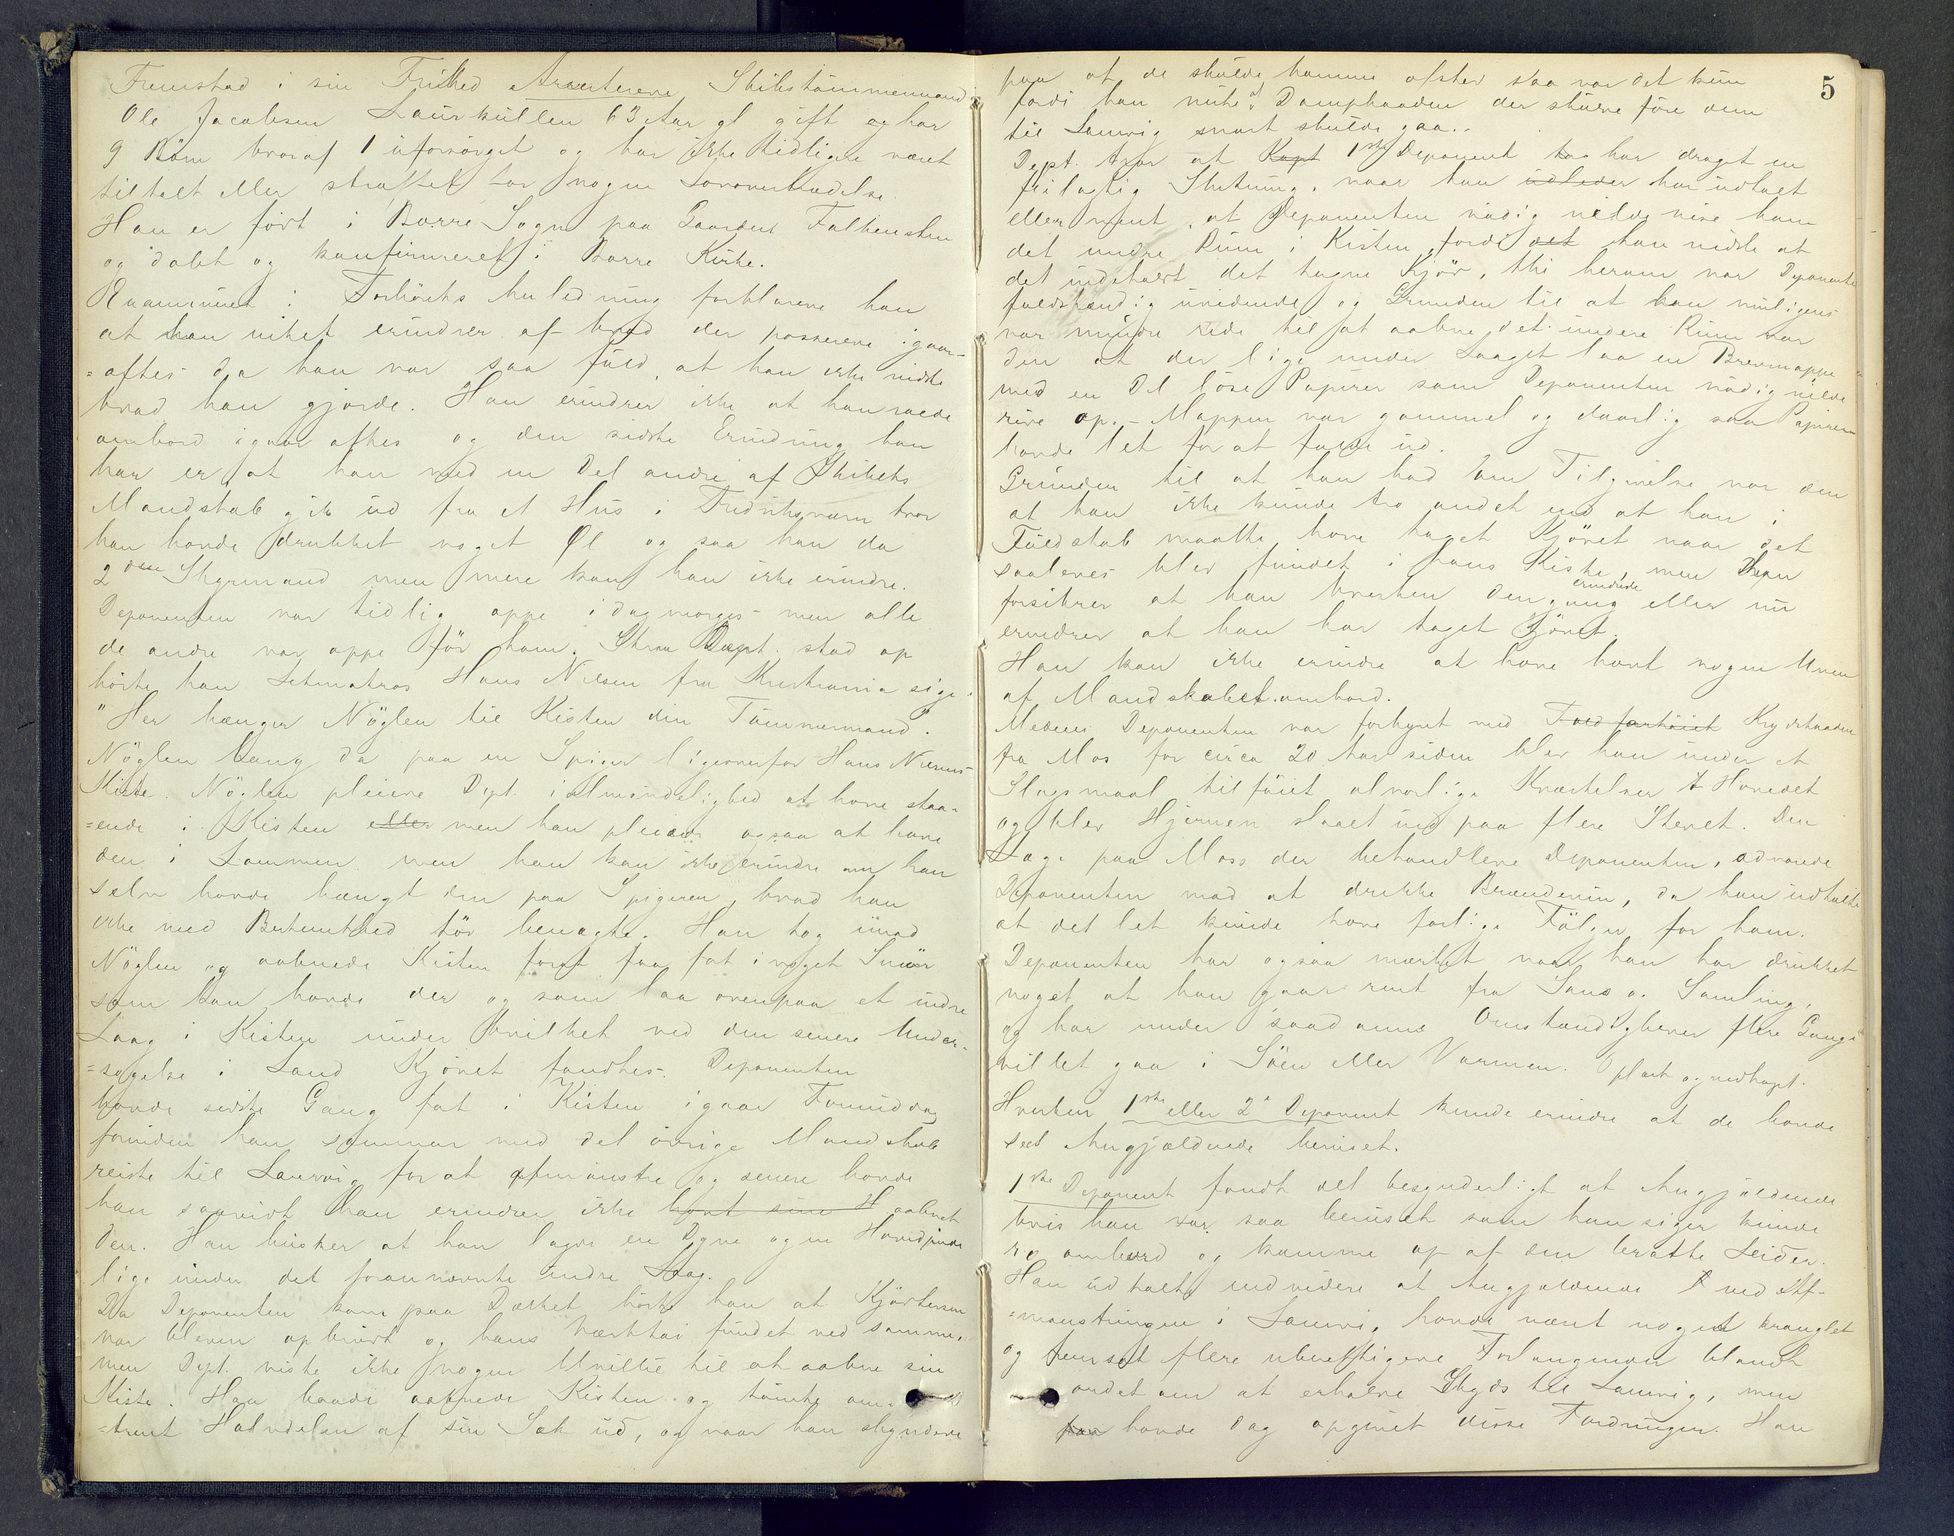 Fremstod i sin Frihed Arresterede Skibstömmermand
Ole Jacobsen Laurkullen 63 Aar gl gift og har
9 Börn hvoraf 1 uforsörget og har ikke tidligere været
tiltalt eller straffet for nogen Lovovertrædelse.
Han er født i Borre Sogn paa Gaarden Falkensten
og döbt og konfirmeret i Borre Kirke.
Examineret i Forhörets Anledning forklarede han
at han intet erindrer af hvad der passerede igaar-
=aftes da han var saa fuld, at han ikke vidste
hvad han gjorde. Han erindrer ikke at han roede
ombord igaar aftes og den sidste Erindring han
har er at han med en Del andre af Skibets
Mandskab gik ud fra et Hus i Fredriksværn hvor
han havde drukket noget Øl og saa han da
2den Styrmand men mere kan han ikke erindre.
Deponenten var tidlig oppe idagmorges men alle
de andre var oppe för ham. Strax Dept. stod op
hörte han Letmatros Hans Nilsen fra Kristiania sige
"Her hænger Nöglen til Kisten din Tömmermand".
Nöglen hang da paa en Spiger ligeoverfor Hans Nilsens
Kiste. Nöglen pleiede Dept. i Almindelighed at have staa-
=ende i Kisten eller men han pleiede ogsaa at have
den i Lommen men han kan ikke erindre om han
selv havde hængt den paa Spigeren, hvad han
ikke med Bestemthed tör benægte. Han tog imod
Nöglen og aabnede Kisten for at faa fat i noget Smör
som han havde der og som laa ovenpaa et indre
Laag i Kisten under hvilket ved den senere Under-
=sögelse i Land Kjödet fandtes. Deponenten
havde sidste Gang fat i Kisten igaar Formiddag
forinden han sammen med det övrige Mandskab
reiste til Laurvig for at afmönstre og senere havde
han saavidt han erindrer ikke havt sin K aabnet
den. Han husker at han lagde en Dyne og en Hovedpude
lige under det forannævnte indre Laag.
Da Deponenten kom paa Dækket hörte han at Kjödtönden
var bleven opbrudt og hans Værktöi fundet ved samme,
men Dept. viste ikke nogen Uvillie til at aabne sin
Kiste. Han baade aabnede Kisten og tömte om-
=trent Halvdelen af sin Sæk ud, og naar han skyndede
5
paa at de skulde komme afsted saa var det kun
fordi han vidste at Dampbaaden der skulde före dem
til Laurvig snart skulde gaa.
Dept. tror at Kapt 1ste Deponent har draget en
feilagtig Slutning, naar han udleder har udtalt
eller ment, at Deponenten nödig vilde vise ham
det indre Rum i Kisten fordi det han vidste at
det indeholdt det tagne Kjöd, thi herom var Deponenten
fuldstændig uvidende og Grunden til at han muligens
var mindre rede til at aabne det indere Rum var
den at der lige under Laaget laa en Brevmappe
med en Del löse Papirer som Deponenten nödig vilde
rive op. Mappen var gammel og daarlig saa Papirerne
havde let for at falde ud.
Grunden til at han bad om Tilgivelse var den
at han ikke kunde tro andet end at han i
Fuldskab maatte have taget Kjödet naar det
saaledes blev fundet i hans Kiste, men Depn
forsikrer at han hverken dengang erindrede eller nu
erindrer at han har taget Kjödet.
Han kan ikke erindre at have havt nogen Uven
af Mandskabet ombord.
Medens Deponenten var forhyret med Toldfartöiet Krydsbaaden
fra Mos for circa 20 Aar siden blev han under et
Slagsmaal tilföiet alvorlige Kvæstelser i Hovedet
og blev Hjernen slaaet ind paa flere Steder. Den
Læge paa Moss der behandlede Deponenten, advarede
Deponenten mod at drikke Brændevin, da han udtalte
at det let kunde have farlige Fölger for ham.
Deponenten har ogsaa mærket naar han har drukket
noget at han gaar rent fra Sans og Samling,
og har under saadanne Omstændigheder flere Gange
villet gaa i Söen eller Varmen. oplæst og vedtaget.
Hverken 1ste eller 2d Deponent kunde erindre at de havde
seet Angjældende beruset.
1ste Deponent fandt det besynderligt at Angjældende
hvis han var saa beruset som han siger kunde
ro ombord og komme op af den bratte Leider.
Han udtalte endvidere at Angjældende ved Af-
=mönstringen i Laurvig havde været noget kranglet
og fremsat flere uberettigede Forlangender blandt
andet om at erholde Skyds til Laurvig, men
han havde dog opgivet disse Fordringer. Han